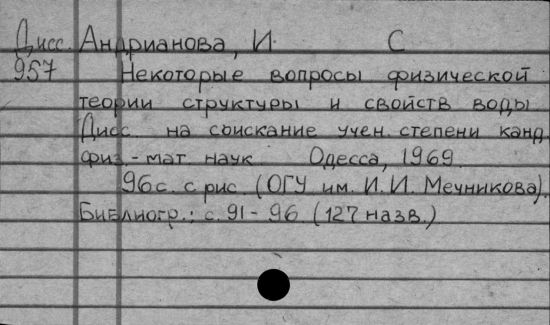 Дисс. Андрианова, И. С
957 Некоторые вопросы физической
теории структуры и свойств воды
Дисс. на соискание учен. степени канд
физ.-мат наук Одесса, 1969.
96с. с рис. (ОГУ им. И.И. Мечникова).
Библиогр.: с. 91-96 (127 назв.)